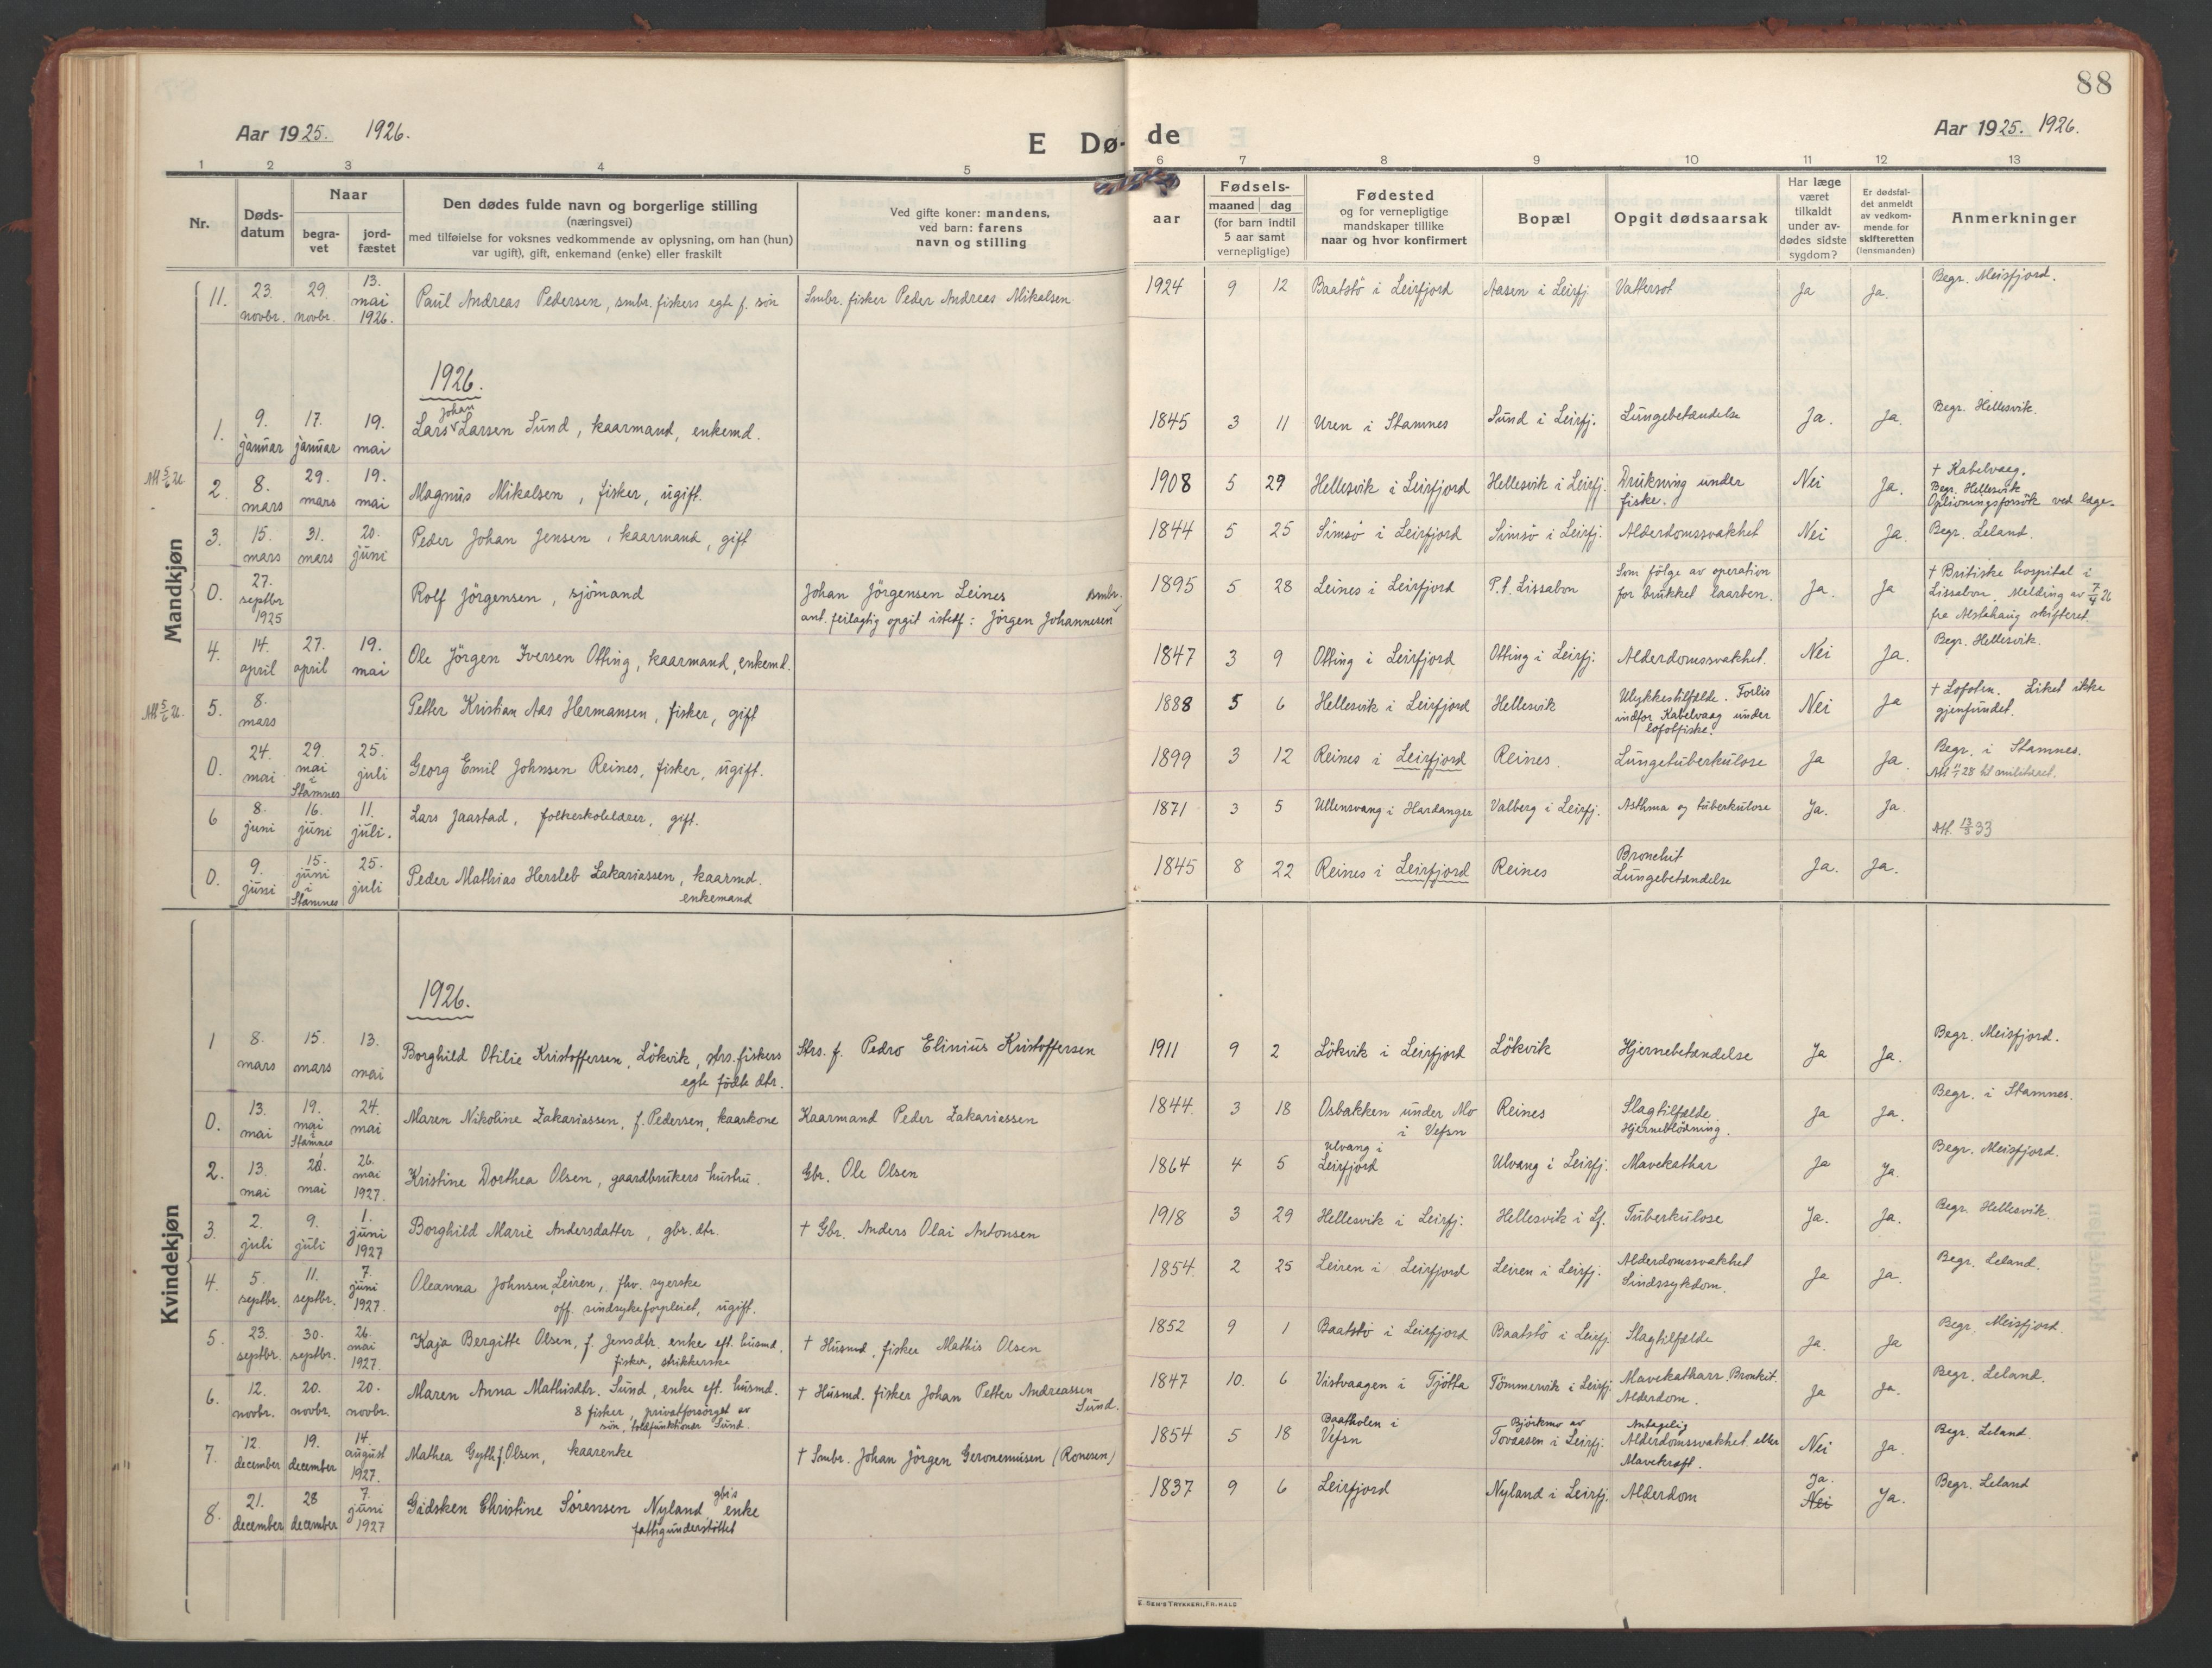 88
Aar 1925. 1926.
E Dø-
de
Aar 1925. 1926.
1 2 3 4 5 6 7 8 9 10 11 12 13
Nr.
Døds-
datum
Naar
begra-
vet
jord-
fæstet
Den dødes fulde navn og borgerlige stilling
(næringsvei)
med tilføielse for voksnes vedkommende av oplysning, om han (hun)
var ugift), gift, enkemand (enke) eller fraskilt
Ved gifte koner: mandens,
ved barn: farens
navn og stilling
aar
Fødsels-
maaned dag
(for barn indtil
5 aar samt
vernepligtige)
Fødested
og for vernepligtige
mandskaper tillike
naar og hvor konfirmert
Bopæl
Opgit dødsaarsak
Har læge
været
tilkaldt
under av-
dødes sidste
sygdom?
Er dødsfal-
det anmeldt
av vedkom-
mende for
skifteretten
(lensmanden)
Anmerkninger
Mandkjøn
11. 23. novbr. 29. novbr. 13. mai 1926. Paul Andreas Pedersen, smbr. fiskers egte f. søn Smbr. fisker Peder Andreas Mikalsen 1924 9 12 Baatstö i Leirfjord Aasen i Leirfj. Vattersot Ja Ja. Begr. Meisfjord.
1926.
1. 9. januar 17. januar 19. mai Lars Johan Larsen Sund, kaarmand, enkemd. 1845 3 11 Uren i Stamnes Sund i Leirfj. Lungebetændelse Ja. Ja. Begr. Hellesvik.
2. 8. mars 29. mars 19. mai Magnus Mikalsen, fisker, ugift. 1908 5 29 Hellesvik i Leirfjord Hellesvik i Leirfj. Drukning under fiske. Nei Ja. † Kabelvaag. Begr. Hellesvik Oplivningsforsök ved læge.
3. 15. mars 31. mars 20. juni Peder Johan Jensen, kaarmand, gift 1844 5 25 Simsö i Leirfjord Simsö i Leirfj. Alderdomssvakhet Nei Ja. Begr. Leland.
0. 27. septbr 1925 Rolf Jörgensen, sjömand Johan Jörgensen Leines smbr.
ant. feilagtig opgit istetf: Jörgen Johannesen 1895 5 28 Leines i Leirfjord P.t. Lissabon Som fölge av operation for brukket laarben. Ja. Ja † Britiske hospital i Lissabon. Melding av 7/4 26 fra Alstahaug skifteret.
4. 14. april 27. april 19. mai Ole Jörgen Iversen Otting, kaarmand, enkemd. 1847 3 9 Otting i Leirfjord Otting i Leirfj. Alderdomssvakhet. Nei Ja. Begr. Hellesvik.
5. 8. mars Petter Kristian Aas Hermansen, fisker, gift 1888 5 6 Hellesvik i Leirfjord Hellesvik Ulykkestilfælde. Forlis indfor Kabelvaag under lofotfiske. Nei Ja † Lofoten. Liket ikke gjenfundet.
0. 24. mai 29. mai i Stamnes 25. juli Georg Emil Johnsen Reines, fisker, ugift. 1899 3 12 Reines i Leirfjord Reines. Lungetuberkulose Ja Ja. Begr. i Stamnes.
6 8. juni 16. juni 11. juli. Lars Jaastad, folkeskolelærer, gift. 1871 3 5 Ullensvang i Hardanger Valberg i Leirfj. Asthma og tuberkulose Ja. Ja. Att. 13/5 33
0. 9. juni 15. juni i Stamnes 25. juli Peder Mathias Hersleb Zakariassen, kaarmd. enkemand 1845 8 22 Reines i Leirfjord Reines Bronchit Lungebetændelse Ja. Ja.
Kvindekjøn
1926.
1 8. mars 15. mars 13. mai Borghild Otilie Kristoffersen, Lökvik, strs. fiskers egte födte dtr. Strs. f. Pedro Elinius Kristoffersen 1911 9 2 Lökvik i Leirfjord Lökvik Hjernebetændelse Ja Ja. Begr. Meisfjord.
0. 13. mai 19. mai i Stamnes 24. mai Maren Nikoline Zakariassen, f. Pedersen, kaarkone Kaarmand Peder Zakariassen 1844. 3 18 Osbakken under Mo i Vefsn Reines Slagtilfælde. Hjerneblödning. Ja Ja. Begr. i Stamnes.
2. 13. mai mai 26. mai 1927. Kristine Dorthea Olsen, gaardbrukers hustru. Gbr. Ole Olsen 1864 4 5 Ulvang i Leirfjord Ulvang i Leirfj. Mavekathar Ja Ja. Begr. Meisfjord.
3. 2. juli 9. juli 1. juni 1927 Borghild Marie Andersdatter, gbr. dtr. † Gbr. Anders Olai Antonsen 1918 3 29 Hellesvik i Leirfj. Hellesvik i Lf. Tuberkulose Ja. Ja. Begr. Hellesvik.
4. 5. septbr. 11. septbr. 7. juni 1927. Oleanna Johnsen Leiren, fhv. syerske off. sindsykeforpleiet, ugift. 1854. 2 25 Leiren i Leirfjord Leiren i Leirfj. Alderdomssvakhet Sindssykdom. Ja Ja. Begr. Leland.
5. 23. septbr. 30. septbr. 26. mai 1927. Kaja Bergitte Olsen, f. Jensdtr. enke eft. husmd. fisker, strikkerske † Husmd. fisker Mathis Olsen 1852 9 1 Baatstö i Leirfjord Baatstö i Leirfj Slagtilfælde Ja. Ja Begr. Meisfjord.
6. 12. novbr. 20. novbr. 20. novbr. Maren Anna Mathisdtr. Sund, enke eft. husmd. & fisker, privatforsörget av sön, Sund. † Husmd. fisker Johan Petter Andreassen Sund. 1847 10. 6 Vistvaagen i Tjötta Tömmervik i Leirfj. Mavekatharr. Bronkit. Alderdom. Ja Ja. Begr. Leland.
7. 12. december 19. december 14. august 1927. Mathea Gyth f. Olsen, kaarenke † Smbr. Johan Jörgen Geronemusen (Ronesen) 1854 5 18 Baatholen i Vefsn Björkmo av Tovaasen i Leirfj. Antagelig Alderdomssvakhet eller Mavekræft. Nei Ja. Begr. Leland.
8. 21. december 28 december 7. juni 1927 Gidsken Christine Sörensen Nyland gbr's enke fattigunderstöttet 1837 9 6 Leirfjord Nyland i Leirfj. Alderdom Ja. Nei Ja. Begr. Leland
E. SEM'S TRYKKERI, FR.HALD